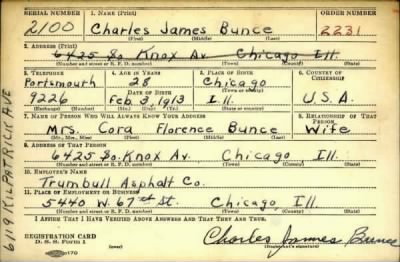 SERIAL NUMBER 1. NAME (Print) ORDER NUMBER
2100 Charles James Bunce 2231
(First) (Middle) (Last)
2. ADDRESS (Print)
6425 So. Knox Av. Chicago Ill.
(Number and street or R. F. D. number) (Town) (County) (State)
3. TELEPHONE 4. AGE IN YEARS 5. PLACE OF BIRTH 6. COUNTRY OF CITIZENSHIP
Portsmouth 28 Chicago
DATE OF BIRTH (Town or county)
9226 Feb. 3, 1913 Ill. U.S.A.
(Mo.) (Day) (Yr.) (State or country)
7. NAME OF PERSON WHO WILL ALWAYS KNOW YOUR ADDRESS 8. RELATIONSHIP OF THAT PERSON
Mrs. Cora Florence Bunce Wife
(Mr., Mrs., Miss) (First) (Middle) (Last)
9. ADDRESS OF THAT PERSON
6425 So. Knox Av. Chicago Ill.
(Number and street or R. F. D. number) (Town) (County) (State)
10. EMPLOYER'S NAME
Trumbull Asphalt Co.
11. PLACE OF EMPLOYMENT OR BUSINESS
5440 W. 67th St. Chicago Ill.
(Number and street or R. F. D. number) (Town) (County) (State)
I AFFIRM THAT I HAVE VERIFIED ABOVE ANSWERS AND THAT THEY ARE TRUE.
REGISTRATION CARD
D. S. S. Form 1 Charles James Bunce
6119 KILPATRICK AVE